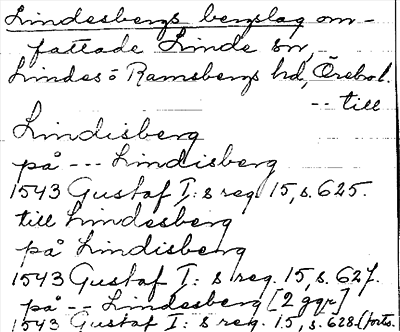 Lindesbergs bergslag om-
fattade Linde sn,
Lindes ö Ramsbergs hd, Örebro l.
-- till
Lindisberg
på --- Lindisberg
1543 Gustaf I:s reg. 15, s. 625.
till Lindesberg
på Lindisberg
1543 Gustaf I:s reg. 15, s. 627.
på -- Lindesberg [2 ggr]
1543 Gustaf I:s reg. 15, s. 628. (forts.